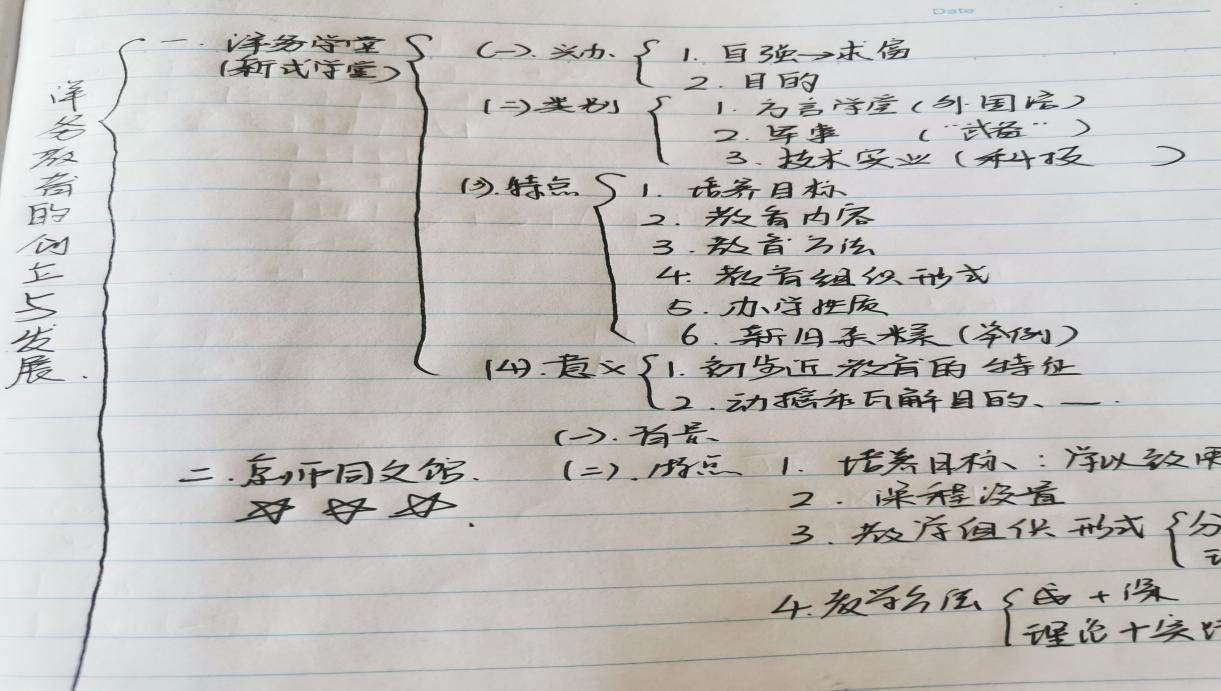 Date
洋务教育的创立与发展.
一. 洋务学堂
(新式学堂)
(一). 兴办
1. 自强→求富
2. 目的
(二) 类别
1. 方言学堂 (外国语)
2. 军事 ("武备")
3. 技术实业 (科技 )
(3). 特点
1. 培养目标
2. 教育内容
3. 教育方法
4. 教育组织形式
5. 办学性质
6. 新旧杂糅 (举例)
(4). 意义
1. 初步近 教育的特征
2. 动摇和瓦解目的、一.
二. 京师同文馆.
(一). 背景
(二). 特点
1. 培养目标、: 学以致用
2. 课程设置
3. 教学组织形式
4. 教学方法
+ 课
理论+实